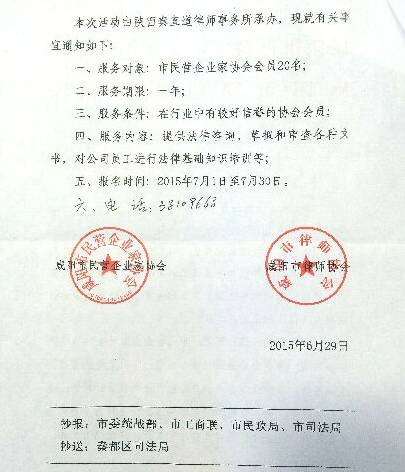 本次活动由陕西秦直道律师事务所承办，现就有关事
宜通知如下：
一、服务对象：市民营企业家协会会员20名；
二、服务期限：一年；
三、服务条件：在行业中有较好信誉的协会会员；
四、服务内容：提供法律咨询，草拟和审查各种文
书，对公司员工进行法律基础知识培训等；
五、报名时间：2015年7月1日至7月30日。
六、电 话：38109663
咸阳市民营企业家协会 咸阳市律师协会
咸阳市民营企业家协会
咸阳市律师协会
2015年6月29日
抄报：市委统战部、市工商联、市民政局、市司法局
抄送：秦都区司法局